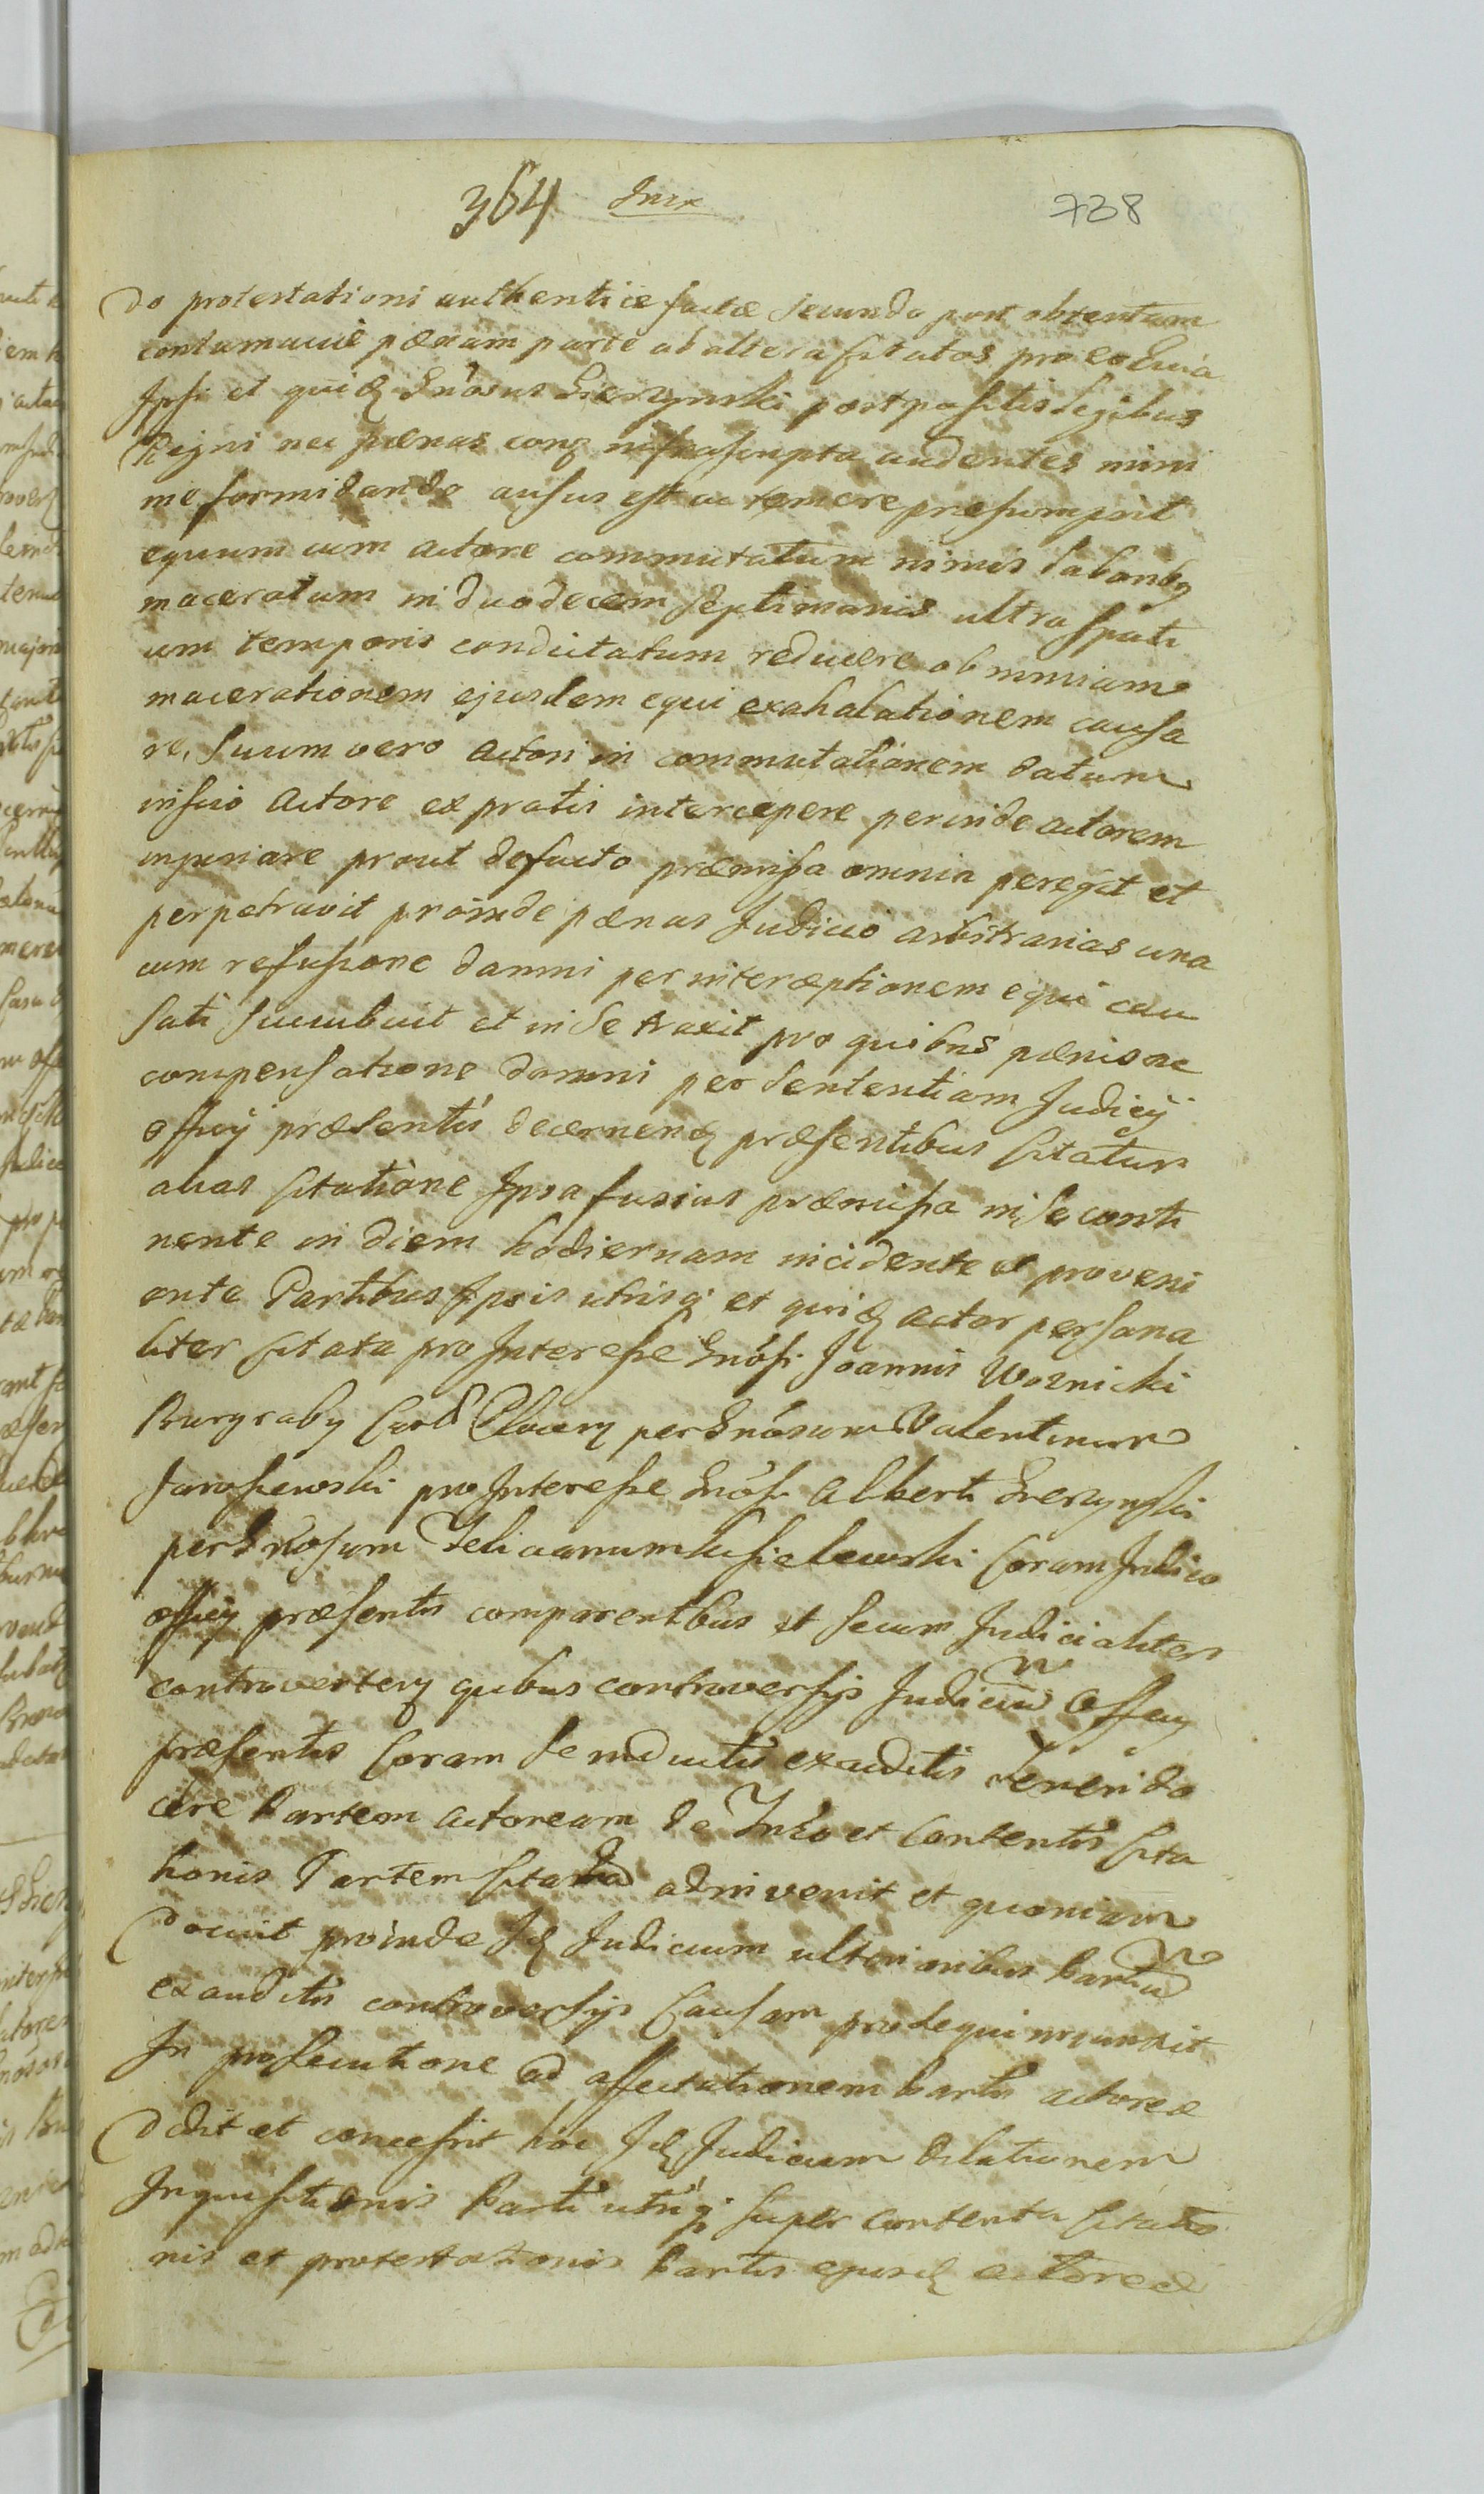 364 738
do protestationi authenticæ factæ secundo post obtentam
contumaciæ pœnam parte ab altera citatos pro eo Quia
Ipse et quidẽ Gnõsus postpositis Legibus
Regni nec pœnas conẽ infrascripta audentes mini
me formidando ausus est ac temere præsumpsit
equum cum Actore commutatum nimis laboribꝰ
maceratum in duodecem Septimanis ultra spati
um temporis condictatum reducere ob nimiam
macerationem ejusdem equi exahalationem causa
re, Suum vero Actori in commutationem datum
inscio Actore ex pratis intercepere perinde actorem
injuriare prout defacto præmissa omnia peregit et
perpetravit proinde pœnas Judicio arbitrarias una
cum refusione damni per interceptionem equi cau
sati succubuit et in se traxit pro quibus pœnis ac
compensatione damni per Sententiam Judicij
Officij præsentis decernendẽ præsentibus Citatur
alias Citatione Ipsa fusius præmissa in se conti
nente in diem hodiernam incidente et proveni
ente Partibus Ipsis utrisqꝫ et quidẽ actor persona
liter Citata pro Interesse Gnõsi Joannis Woznicki
Burgraby per Gnõsum Valentinum
Jaroszewski pro Interesse Gnõsi Alberti
per Gnosum Felicianum Coram Judicio
officij præsentis comparentibus et secum Judicialiter
controverteñ quibus controversijs Judiciũ Officij
præsentis Coram se inductis exauditis
Partem Actoream de Tẽro et Contentis Cita
tionis Partem Citatã adinvenit et quoniam
docuit proinde Idẽ Judicium ulterioribus Partiũ
exauditis controversijs Causam prosequi injunxit
In prosecutione ad affectationem Partis actoreæ
Dedit et concessit hoc Idẽ Judicium Dilationem
Inquisitionis Parti utriqꝫ super contenta Citatio
nis et protestationis Partis ejusdẽ actoreæ